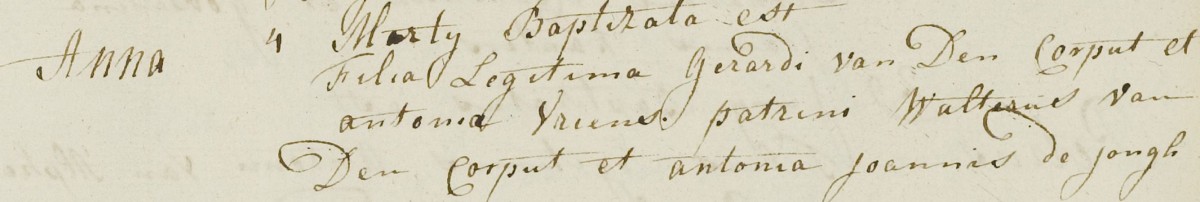 4 Marty Baptizata est
Anna Filia Legitima Gerardi van Den Corput et
antonia Vriens. patrini Walterus van
Den Corput et antonia Joannis de jongh